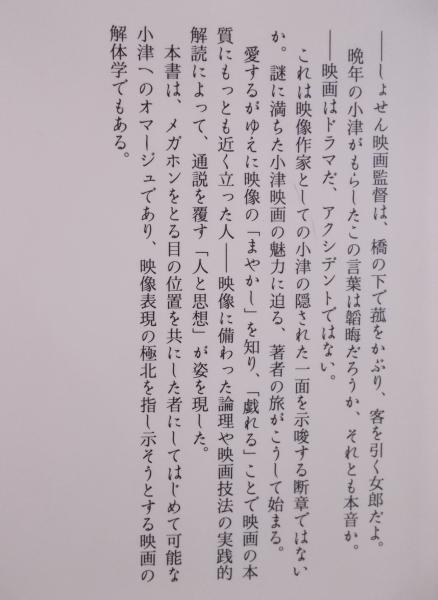 ――しょせん映画監督は、橋の下で菰をかぶり、客を引く女郎だよ。
晩年の小津がもらしたこの言葉は韜晦だろうか、それとも本音か。
――映画はドラマだ、アクシデントではない。
これは映像作家としての小津の隠された一面を示唆する断章ではない
か。謎に満ちた小津映画の魅力に迫る、著者の旅がこうして始まる。
愛するがゆえに映像の「まやかし」を知り、「戯れる」ことで映画の本
質にもっとも近く立った人――映像に備わった論理や映画技法の実践的
解読によって、通説を覆す「人と思想」が姿を現した。
本書は、メガホンをとる目の位置を共にした者にしてはじめて可能な
小津へのオマージュであり、映像表現の極北を指し示そうとする映画の
解体学でもある。